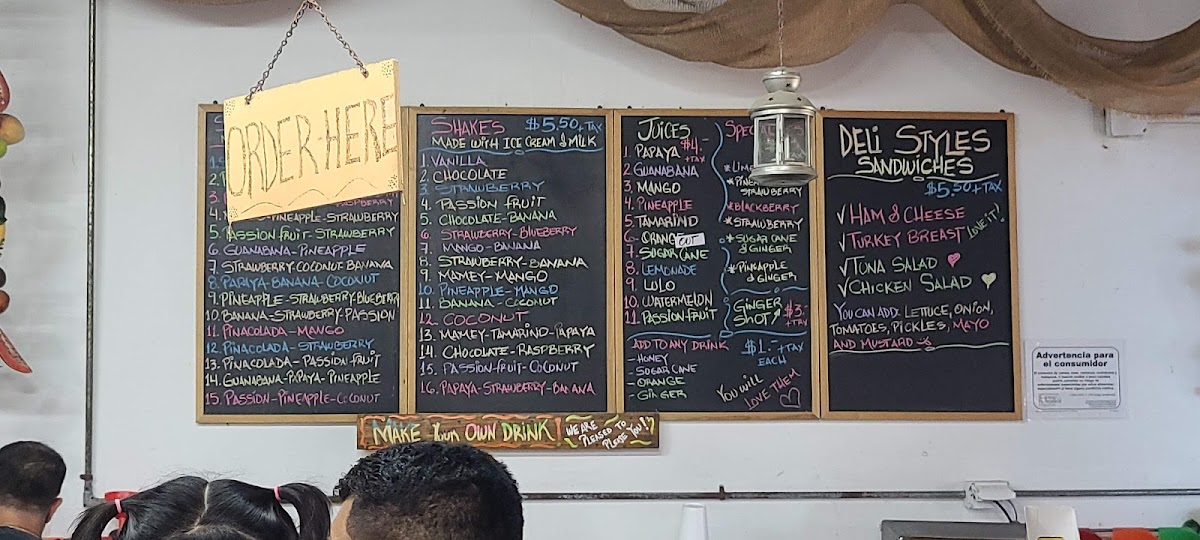 ORDER-HERE
4. PINEAPPLE-STRAWBERRY
5. PASSION FRUIT-STRAWBERRY
6. GUANABANA-PINEAPPLE
7. STRAWBERRY-COCONUT-BANANA
8. PAPAYA-BANANA-COCONUT
9. PINEAPPLE-STRAWBERRY-BLUEBERRY
10. BANANA-STRAWBERRY-PASSION
11. PINACOLADA-MANGO
12. PINACOLADA-STRAWBERRY
13. PINACOLADA-PASSION FRUIT
14. GUANABANA-PAPAYA-PINEAPPLE
15. PASSION-PINEAPPLE-COCONUT
SHAKES $5.50+TAX
MADE WITH ICE CREAM & MILK
1. VANILLA
2. CHOCOLATE
3. STRAWBERRY
4. PASSION FRUIT
5. CHOCOLATE-BANANA
6. STRAWBERRY-BLUEBERRY
7. MANGO-BANANA
8. STRAWBERRY-BANANA
9. MAMEY-MANGO
10. PINEAPPLE-MANGO
11. BANANA-COCONUT
12. COCONUT
13. MAMEY-TAMARIND-PAPAYA
14. CHOCOLATE-RASPBERRY
15. PASSION-FRUIT-COCONUT
16. PAPAYA-STRAWBERRY-BANANA
JUICES
$4.-
+TAX
1. PAPAYA
2. GUANABANA
3. MANGO
4. PINEAPPLE
5. TAMARIND
6. ORANG OUT
7. SUGAR CANE
8. LEMONADE
9. LULO
10. WATERMELON
11. PASSION FRUIT
*PINE
STRAWBERRY
*BLACKBERRY
*STRAWBERRY
*SUGAR CANE
& GINGER
*PINEAPPLE
& GINGER
GINGER
SHOT $3.-
+TAX
ADD TO ANY DRINK $1.-+TAX
EACH
- HONEY
- SUGAR CANE
- ORANGE
- GINGER
YOU WILL
LOVE THEM
DELI STYLES
SANDWICHES
$5.50+TAX
√ HAM & CHEESE
√ TURKEY BREAST LOVE IT!
√ TUNA SALAD
√ CHICKEN SALAD
YOU CAN ADD: LETTUCE, ONION,
TOMATOES, PICKLES, MAYO
AND MUSTARD
MAKE YOUR OWN DRINK!
WE ARE
PLEASED TO
PLEASE YOU!
Advertencia para
el consumidor